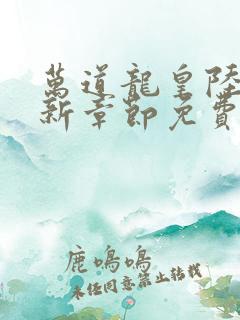 萬道龍皇陸
新章節免費
鹿鳴鳴
未任同意禁止轉載